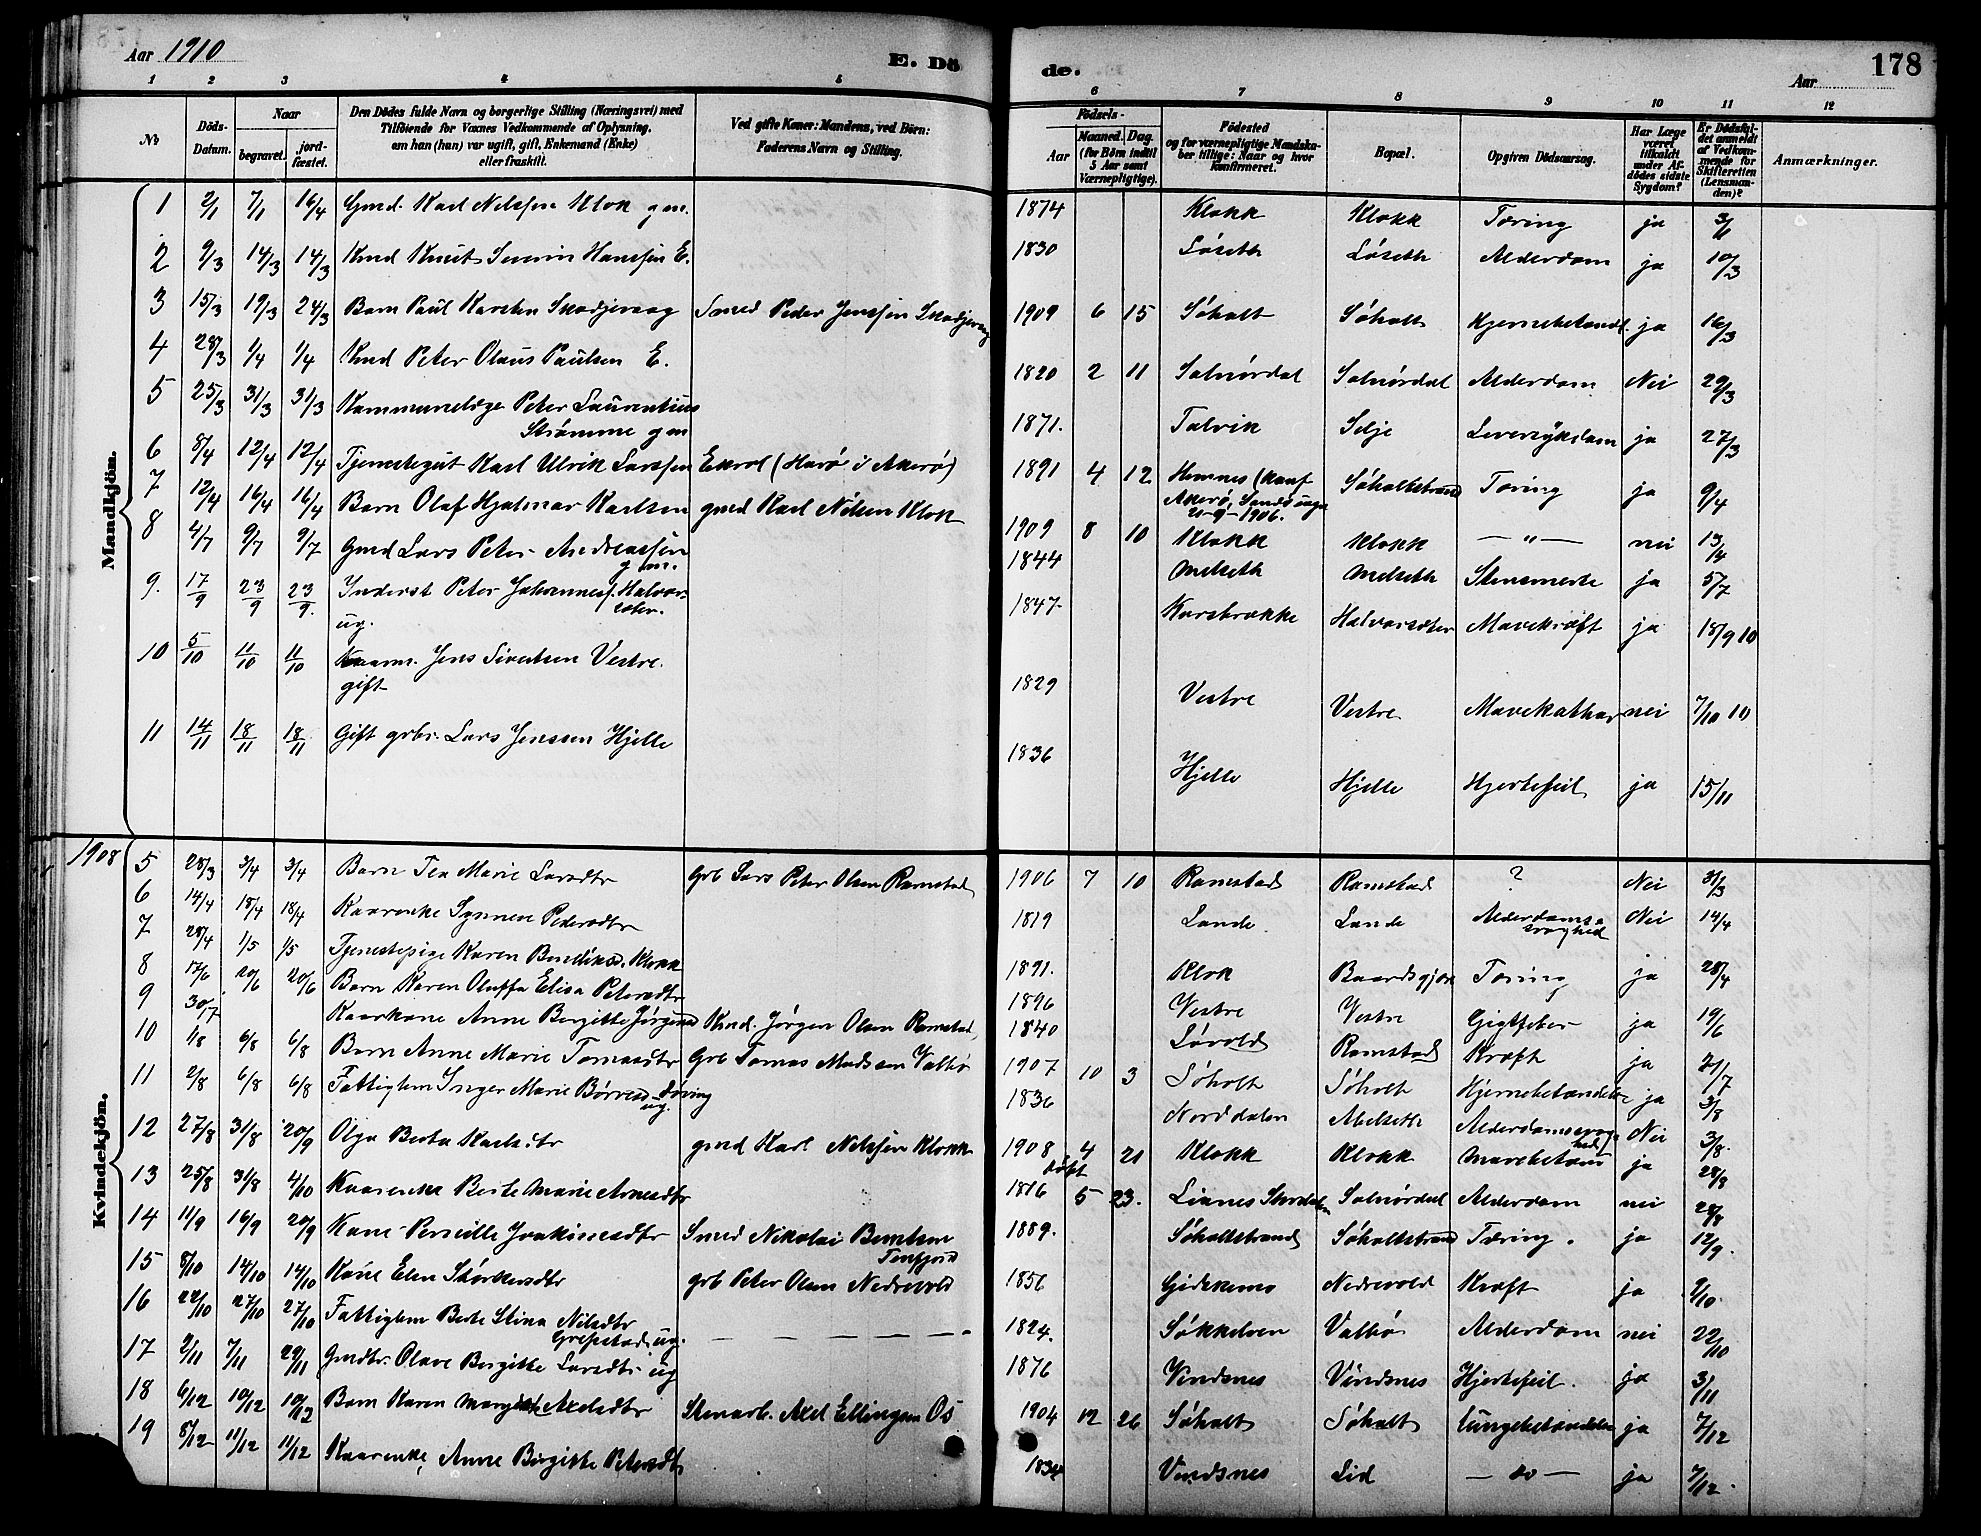 Aar 1910
E. Dö
de.
Aar
178
1 2 3 4 5
6 7 8 9 10 11 12
No
Döds-Datum.
Naar
begravet.
jord-fæstet.
Den Dödes fulde Navn og borgerlige Stilling (Næringsvei) med
Tilföiende for Voxnes Vedkommende af Oplysning,
om han (hun) var ugift, gift, Enkemand (Enke)
eller fraskilt.
Ved gifte Koner: Mandens, ved Börn:
Faderens Navn og Stilling.
Födsels-
Aar
Maaned. Dag.
(for Börn indtil
5 Aar samt
Værnepligtige).
Födested
og for værnepligtige Mandska-
ber tillige: Naar og hvor
konfirmeret.
Bopæl.
Opgiven Dödsaarsag.
Har Læge
været
tilkaldt
under Af-
dödes sidste
Sygdom?
Er Dödsfal-
det anmeldt
af Vedkom-
mende for
Skifteretten
(Lensman-
den)?
Anmærkninger.
Mandkjön.
1 2/1 7/1 16/4 Gmd. Karl Nilssen Klok gm. 1874 Klokk Klokk Tæring ja 3/1
2 9/3 14/3 14/3 Kmd Knut Severin Hanssen E. 1830 Løseth Løseth Alderdom ja 10/3
3 15/3 19/3 24/3 Barn Paul Karsten Skodjevaag Smed Peder Jenssen Skodjevaag 1909 6 15 Søholt Søholt Hjernebetændl. ja 16/3
4 28/3 1/4 1/4 Kmd Peter Olaus Paulsen E. 1820 2 11 Solnørdal Solnørdal Alderdom Nei 29/3
5 25/3 31/3 31/3 Kommunelæge Peter Laurentius
Strømme gm 1871. Talvik Selje Leversykdom ja 27/3
6 8/4 12/4 12/4 Tjenestegut Karl Ulrik Larssen Ekrol (Harø i Akerø) 1891 4 12 Hemnes (konf
Akerø, Sands
21-9-1906. Søholtstrand Tæring ja 9/4
7 12/4 16/4 16/4 Barn Olaf Hjalmar Karlsen gmd Karl Nilsen Klok 1909 8 10 Klokk Klokk — " — nei 13/4
8 4/7 9/7 9/7 Gmd Lars Peter Andreassen
gm. 1844 Melseth Melseth Stensmerte ja 5/7
9. 17/9 23/9 23/9. Inderst Peter Johanness. Halvor-
sæter.
ug. 1847. Korsbrække Halvorsæter Mavekræft ja 18/9 10
10 5/10 11/10 11/10 Kaarm. Jens Sivertsen Vestre.
gift 1829 Vestre Vestre Mavekathar nei 7/10 10
11 14/11 18/11 18/11 Gift grbr. Lars Jenssen Hjelle 1836 Hjelle Hjelle Hjertefeil ja 15/11
1908
Kvindekjön.
5 28/3 3/4 3/4 Barn Tea Marie Larsdtr grb Lars Peter Olsen Ramstad 1906 7 10 Ramstad Ramstad ? Nei 31/3
6 14/4 18/4 18/4 Kaarenke Synnen Pedersdtr 1819 Lande Lande Alderdoms-
svaghed Nei 14/4
7 28/4 1/5 1/5 Tjenestepige Karen Bendiksd. Klokk 1891. Klok Baardsgjær Tæring ja 28/4
8 17/6 20/6 20/6 Barn Karen Oluffa Elisa Petersdtr 1896 Vestre Vestre Gigtfeber ja 19/6
9 30/7 Kaarkone Anne Birgitte Jørgensd Kmd. Jørgen Olsen Ramstad, 1840 Løvold Ramstad Kræft ja 31/7
10 1/8 6/8 6/8 Barn Anne Marie Tomasdtr grb Tomas Madssen Valbø 1907 10 3 Søholt Søholt Hjernebetændelse ja 3/8
11 2/8 6/8 6/8 Fattiglem Inger Marie Børresd Døving
ug. 1836 Norddalen Melseth Alderdomssvag-
hed Nei 3/8.
12 27/8 31/8 20/9 Olga Berta Karlsdtr gmd Karl Nilssen Klokk 1908 4 21 Klokk Klokk Mavebetænd ja 28/8
døpt
13 25/8 31/8 4/10 Kaarenke Berte Marie Arnesdtr 1816 5 23. Lianes Stordalen Solnørdal Alderdom nei 28/8
14 11/9 16/9 20/9 Kone Pernille Joakimsdtr Smed Nikolai Berntsen
Tenfjord 1889. Søholtstrand Søholtstrand Tæring. ja 12/9.
15 8/10 14/10 14/10 Kone Elen Størkersdtr grb Peter Olsen Nedrevold 1856 Gidskemo Nedrevold Kræft ja 9/10.
16 22/10 27/10 27/10 Fattiglem Berte Stina Nilsdtr
Grepstad ug. — — — — — — 1824. Søkkelven Valbø Alderdom nei 22/10
17 2/11 7/11 29/11 Gmdtr. Olave Birgitte Larsdtr ug 1876 Vindsnes Vindsnes Hjertefeil. ja 3/11
18 6/12 10/12 10/12 Barn Karen Margit Axelsdtr Stenarb. Axel Ellingsen Os 1904 12 26 Søholt Søholt Lungebetændelse ja 7/12
19 8/12 11/12 11/12 Kaarenke, Anne Birgitte Petersdtr 1834 Vindsnes Lid — do — ja 7/12.